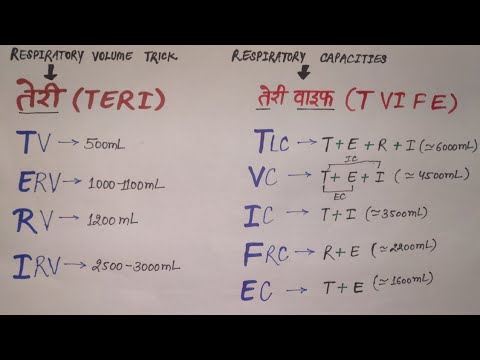 RESPIRATORY VOLUME TRICK
तेरी (TERI)
TV → 500mL
ERV → 1000-1100mL
RV → 1200 mL
IRV → 2500-3000mL
RESPIRATORY CAPACITIES
तेरी वाइफ (T V I F E)
TLC → T+E+R+I (≃6000mL)
IC
VC → T+E+I (≃4500mL)
EC
IC → T+I (≃3500mL)
FRC → R+E (≃2200mL)
EC → T+E (≃1600mL)